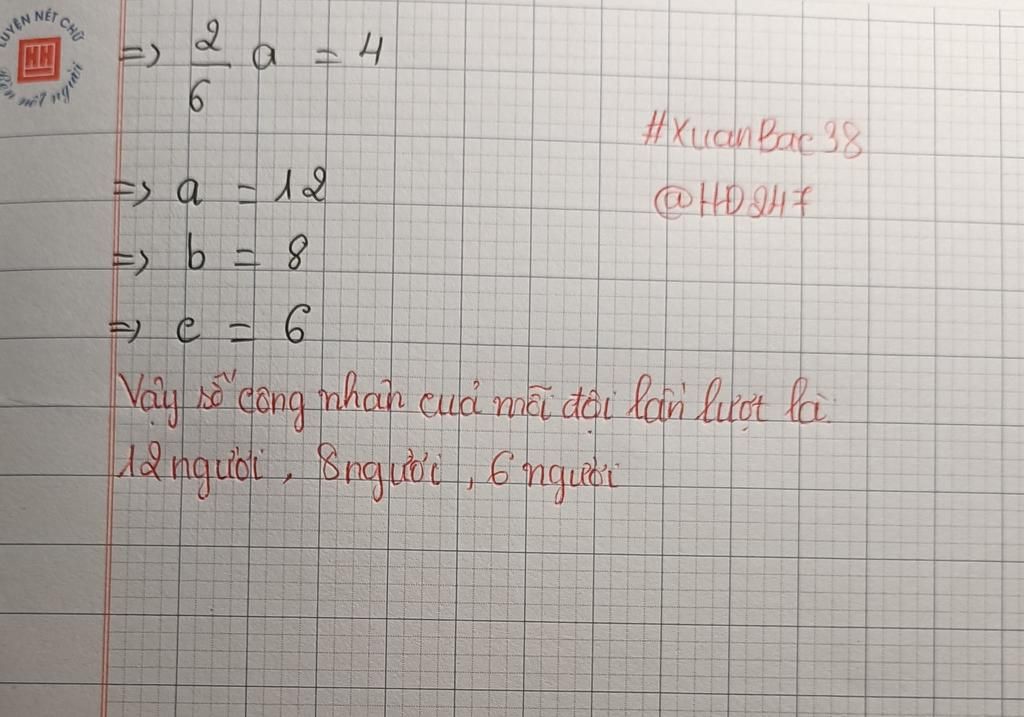 LUYỆN NÉT CHỮ
HH
Rèn nết người
=> 2/6 a = 4
#XuanBac38
=> a = 12
@HD247
=> b = 8
=> c = 6
Vậy số công nhân của mỗi đội lần lượt là
12 người, 8 người, 6 người